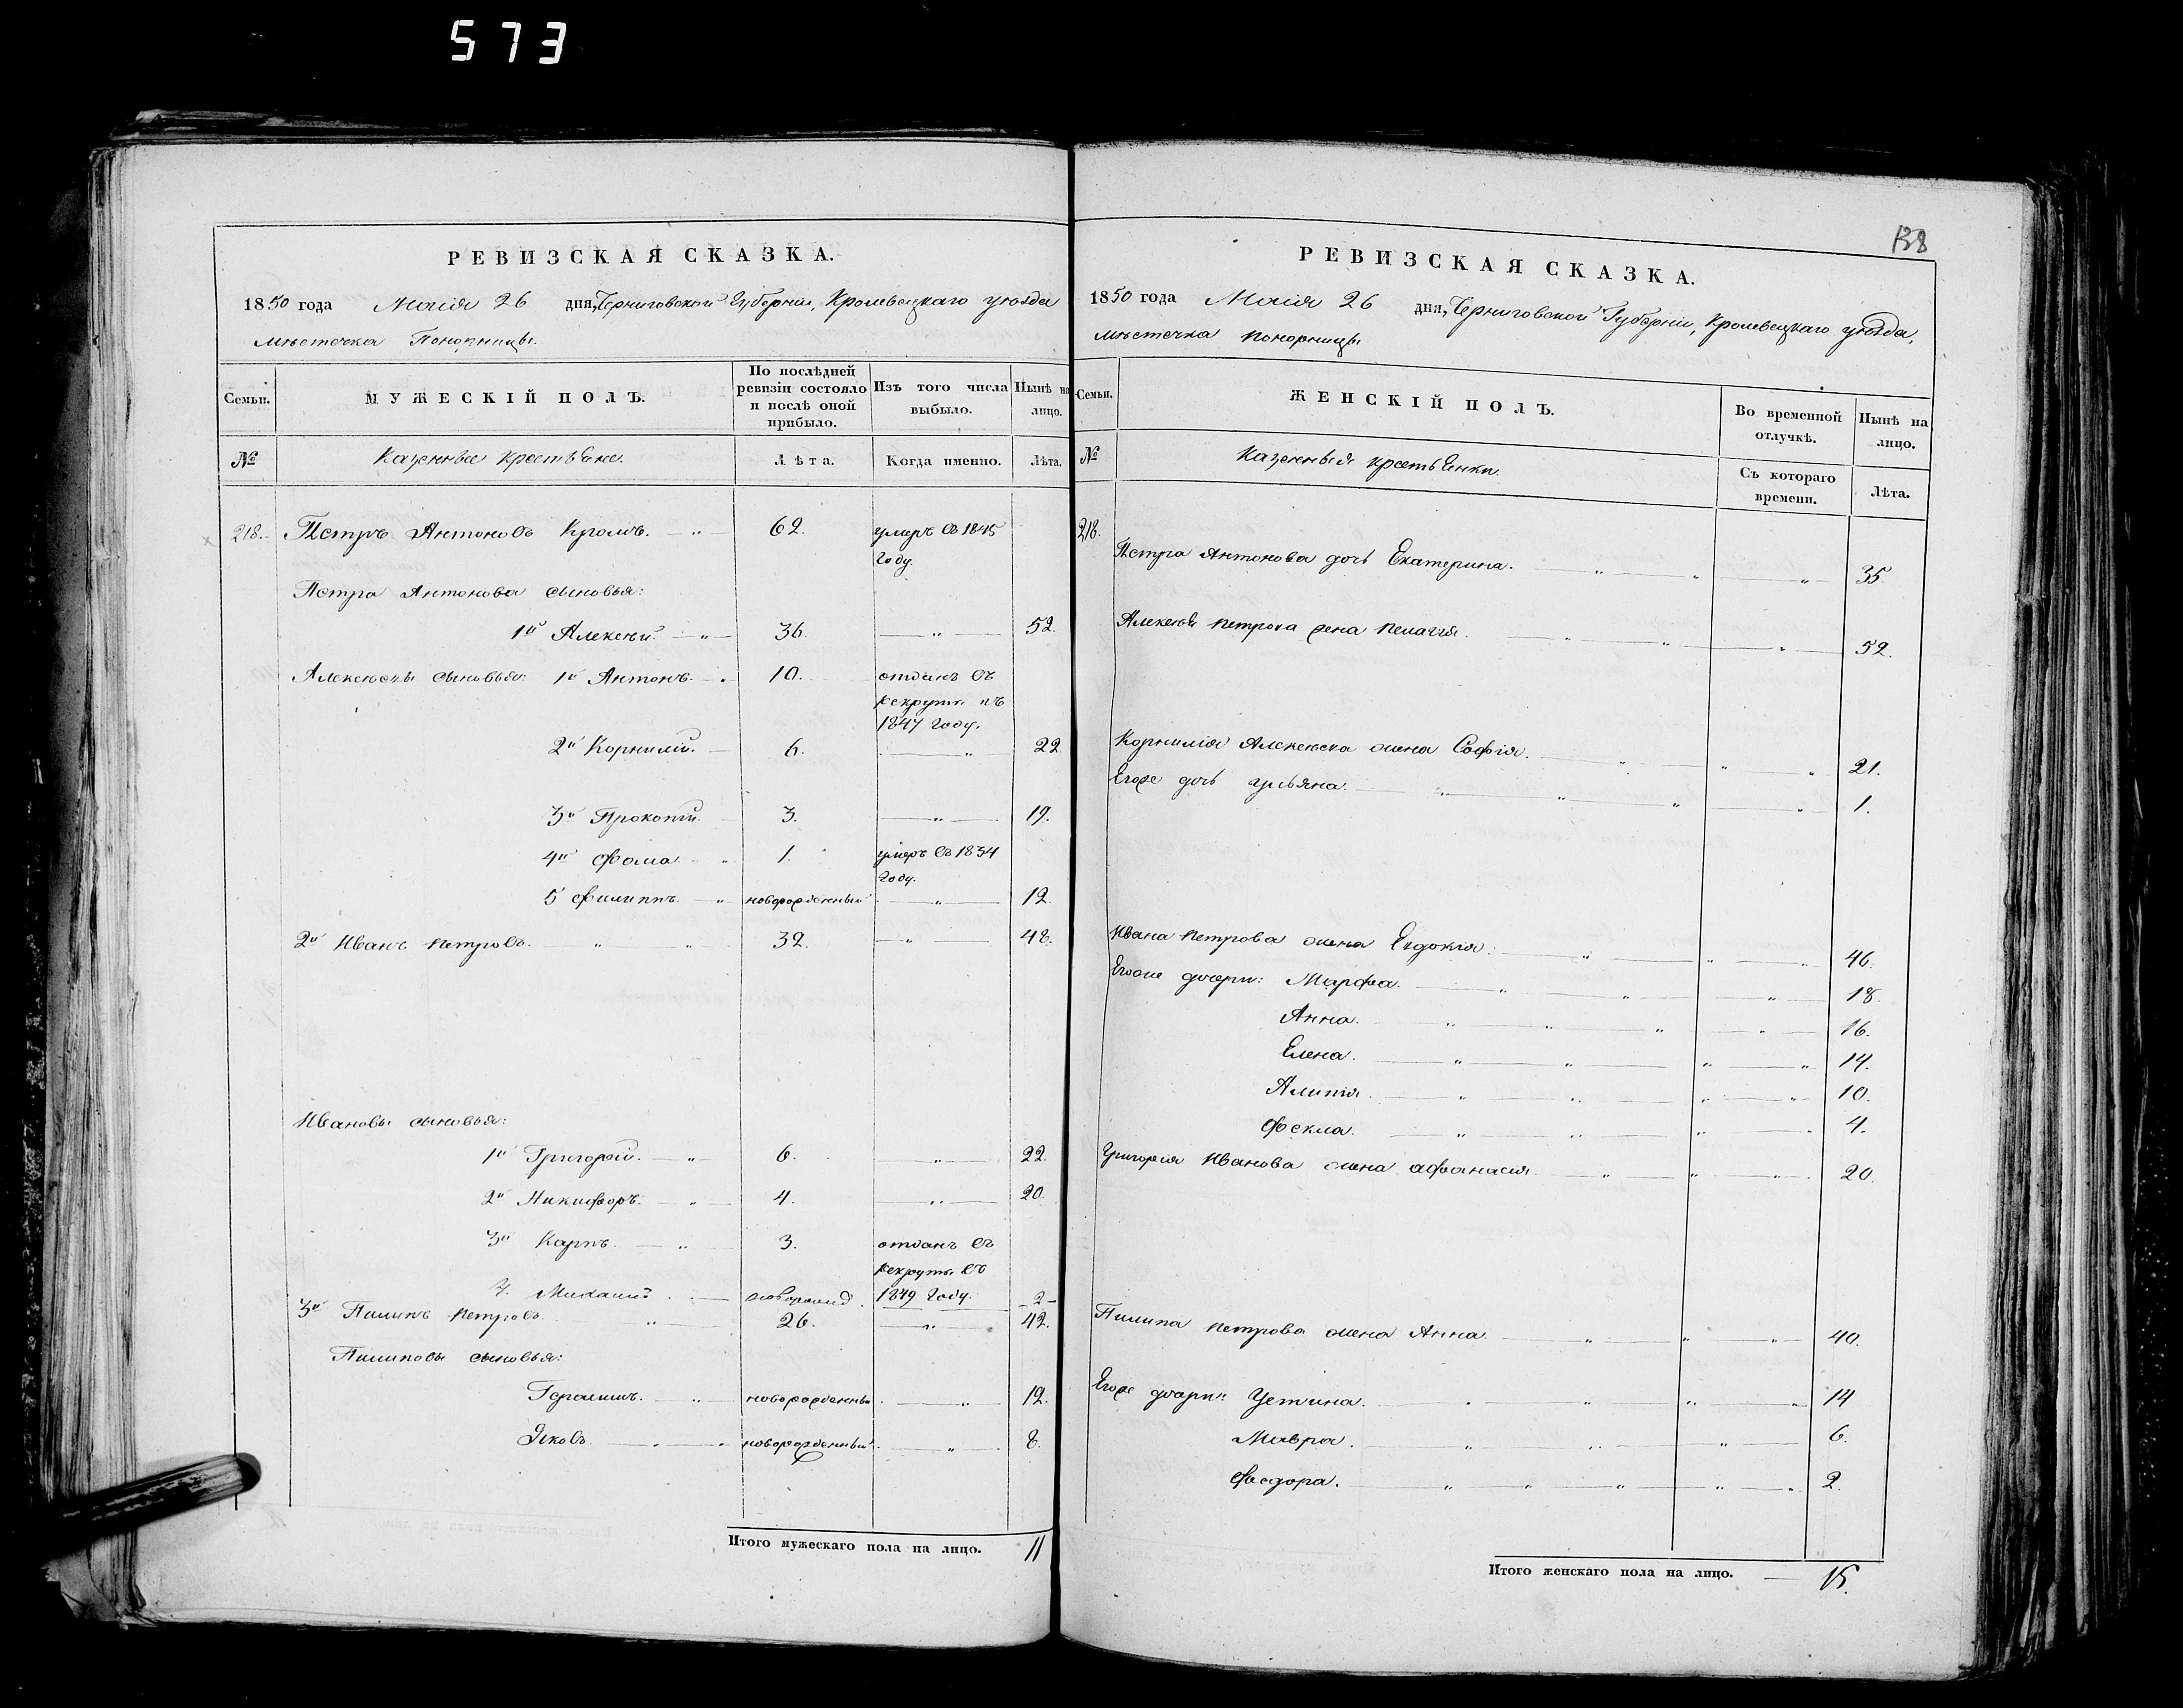 573
РЕВИЗСКАЯ СКАЗКА.
1850 года Маія 26 дня, Черниговской Губерніи, Кролевецкаго уѣзда
мѣстечка Понорницы.
Семьи. МУЖЕСКІЙ ПОЛЪ. По послѣдней ревизіи состояло и послѣ оной прибыло. Изъ того числа выбыло. Нынѣ на лицо.
№ Казенные крестьяне. Лѣта. Когда именно. Лѣта.
218. Петръ Антоновъ Кромъ. 62. умеръ въ 1845
году.
Петра Антонова сыновья:
1й Алексѣй 36. 52.
Алексѣевы сыновья: 1й Антонъ 10. отданъ въ
рекруты въ
1847 году.
2й Корнилій. 6. 22
3й Прокопій. 3. 19.
4й Фома. 1. умеръ въ 1834
году.
5 Филиппъ. новорожденный 12.
2й Иванъ Петровъ. 32. 48.
Ивановы сыновья:
1й Григорій. 6. 22.
2й Никифоръ. 4. 20.
3й Карпъ. 3. отданъ въ
рекруты въ
4. Михаилъ 1849 году. 2
3й Пилипъ Петровъ 26. 42.
Пилиповы сыновья:
Герасимъ. новорожденный 12.
Яковъ новорожденный 8.
Итого мужескаго пола на лицо. 11
138
РЕВИЗСКАЯ СКАЗКА.
1850 года Маія 26 дня, Черниговской Губерніи, Кролевецкаго уѣзда,
мѣстечка Понорницы
Семьи. ЖЕНСКІЙ ПОЛЪ. Во временной отлучкѣ. Нынѣ на лицо.
№ Казенныя крестьянки. Съ котораго времени. Лѣта.
218.
Петра Антонова дочь Екатерина. 35
Алексѣя Петрова жена Пелагія. 52.
Корнилія Алексѣева жена Софія. 21.
Егоже дочь Ульяна. 1.
Ивана Петрова жена Евдокія. 46.
Егоже дочери: Марфа. 18.
Анна. 16.
Елена. 14.
Алипія. 10.
Фекла. 4.
Григорія Иванова жена Афанасія. 20.
Пилипа Петрова жена Анна. 40.
Егоже дочери: Устина. 14
Мавра. 6.
Феодора. 2.
Итого женскаго пола на лицо. 15.